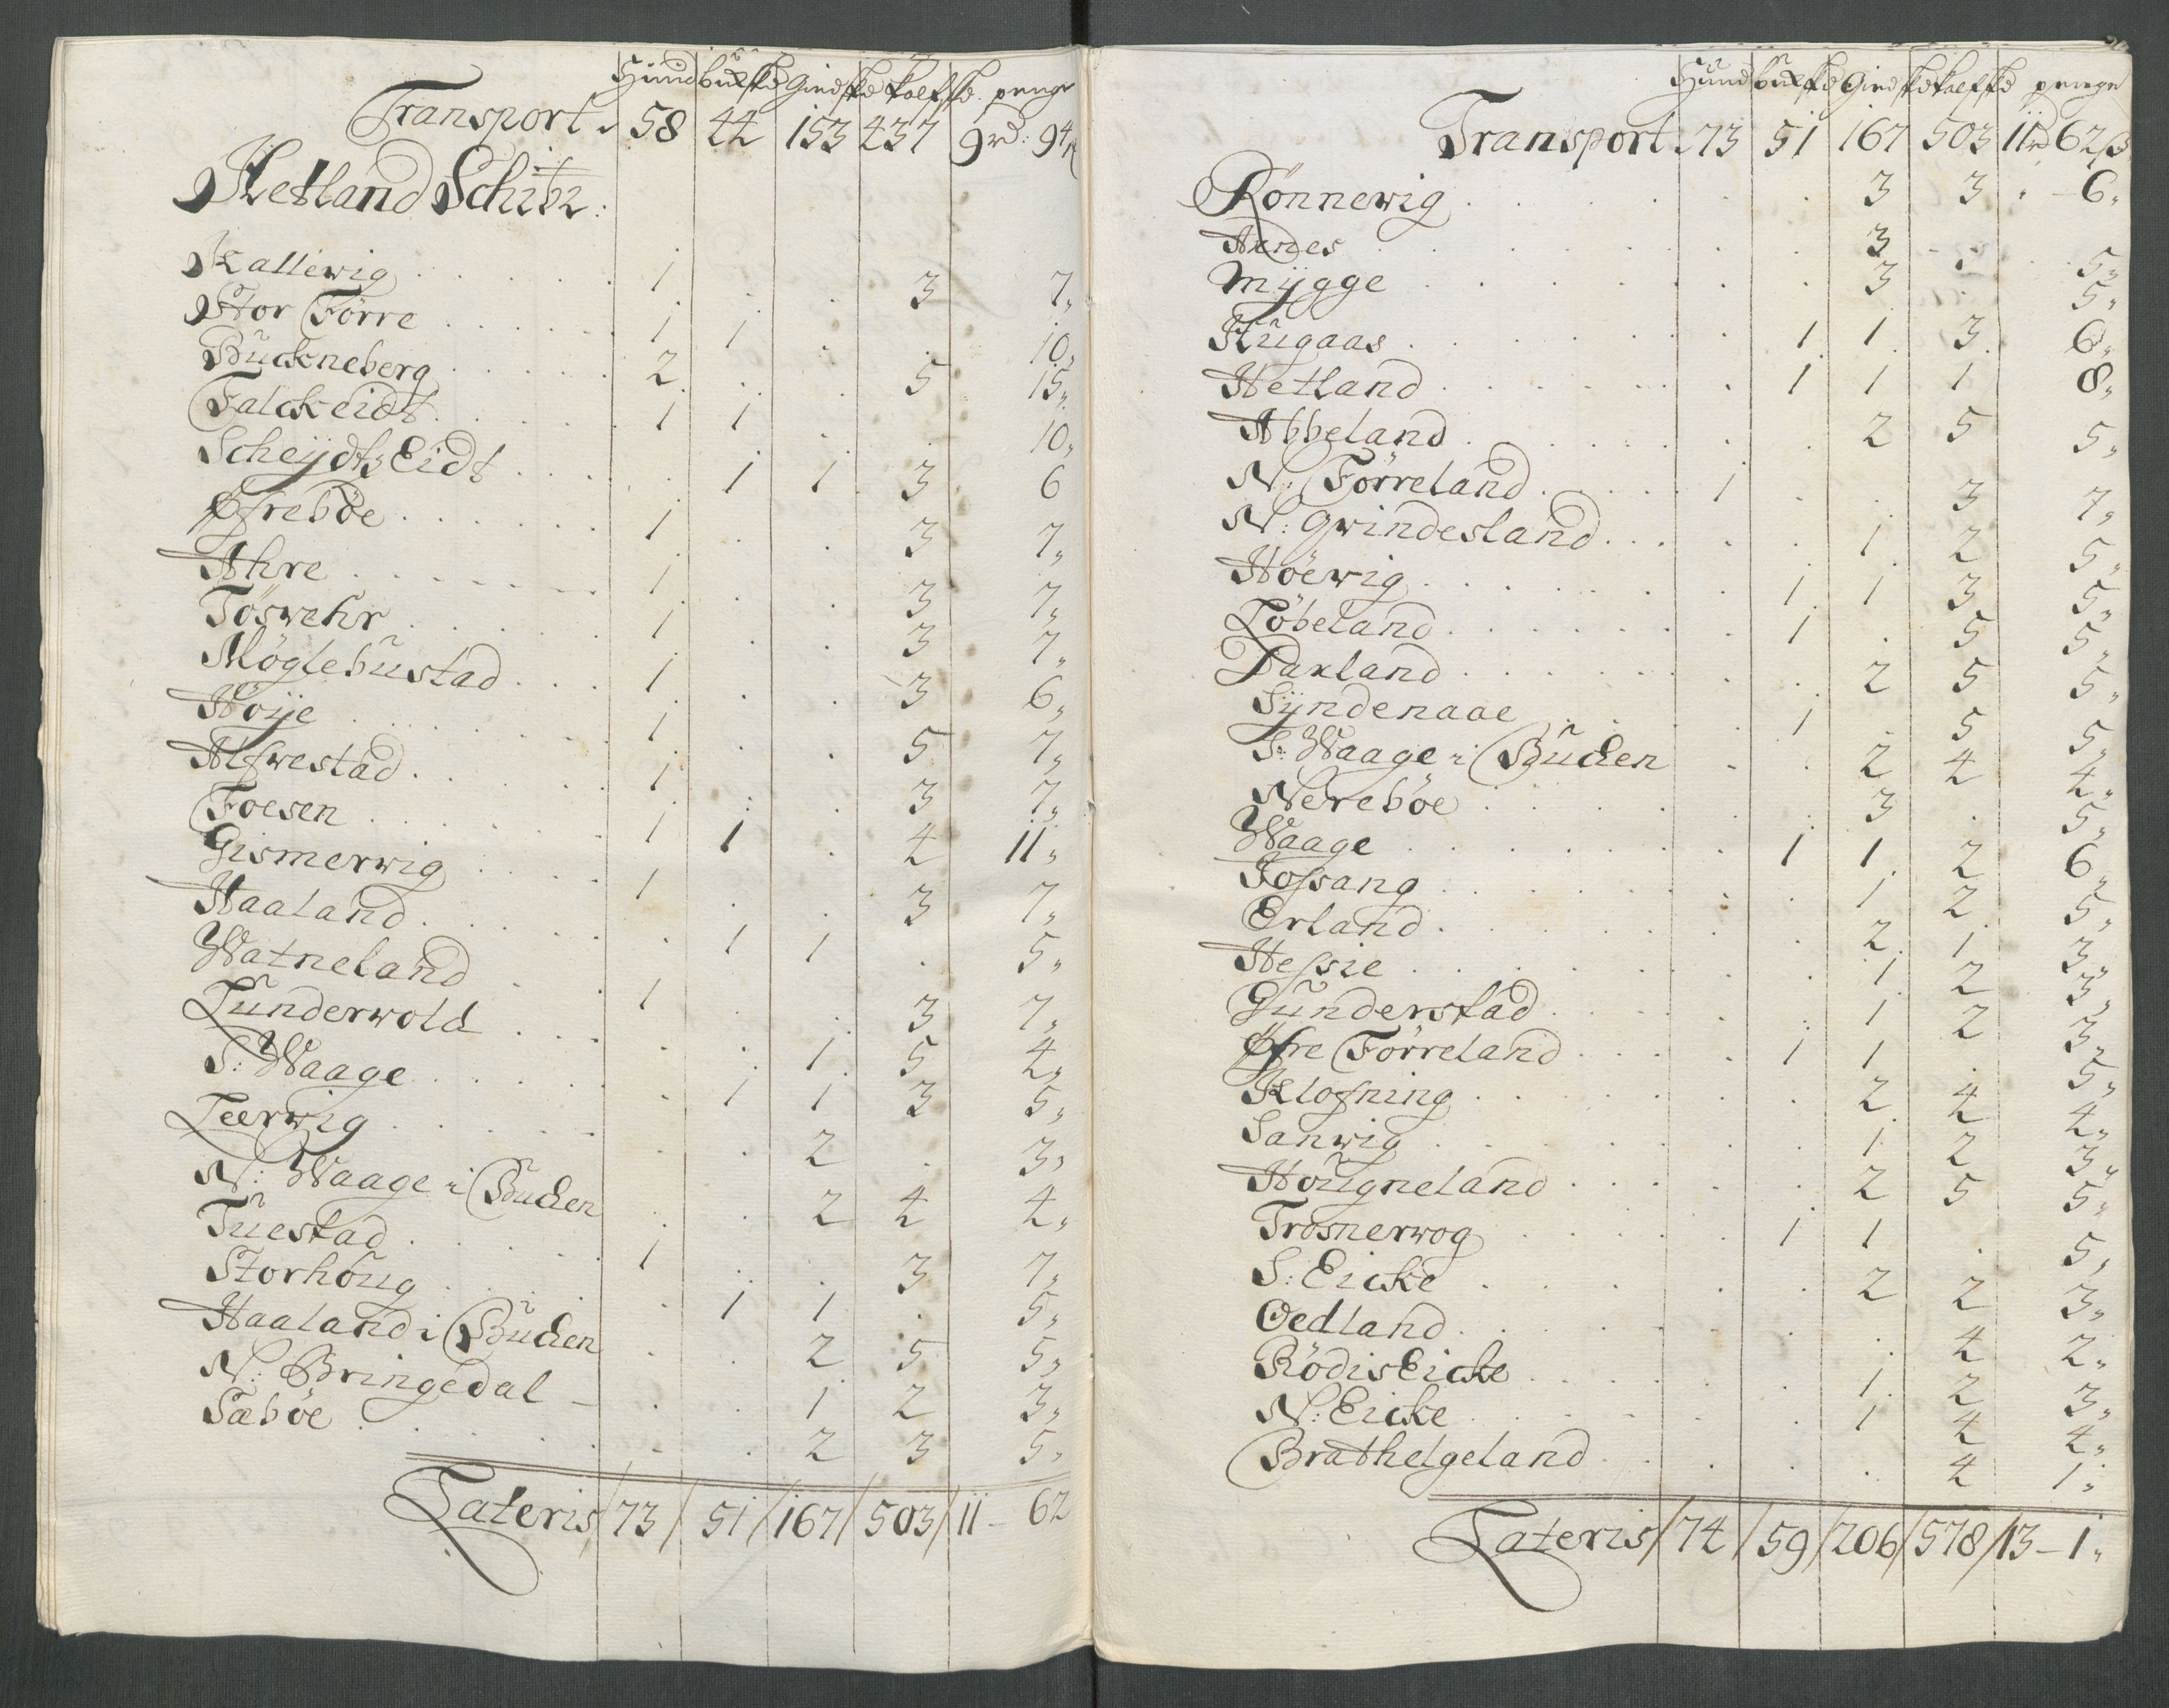 Hünd bückskd Giedskd kalfskd. penge
Transport. 58 44 153 437 9rd: 94
Hetland Schibr:
Kallewig 1 . . 3 7"
Stor Førre 1 1 . . 10"
Buckneberg 2 . . 5 15"
Falckeidt 1 1 . . 10"
ScheijdtzEidt . 1 1 3 6
Øfreböe 1 . . 3 7"
Ahre 1 . . 3 7"
Töswehr 1 . . 3 7"
Möglebüstad 1 . . 3 6"
Höije 1 . . 5 7"
Alfwestad 1 . . 3 7"
Foesen 1 1 . 4 11"
Gismerwig 1 . . 3 7"
Haaland . 1 1 . 5"
Watneland 1 . . 3 7"
Lünderwold . . 1 5 4"
S: Waage . 1 1 3 5"
Leerwig . . 2 . 3"
N: Waage i Bucken . . 2 4 4"
Tüestad 1 . . 3 7"
Storhöug . 1 1 . 5"
Haaland i Bücken . . 2 5 5"
N: Bringedal . . 1 2 3"
Sæböe . . 2 3 5"
Lateris/ 73/ 51/ 167/ 503/ 11 - 62
Hünd bückskd Giedskdkalfskd penge
Transport. 73 51 167 503 11rd 62ß
Rönnewig . . 3 3 . - 6"
Aenes . . 3 . 5"
Mijgge . . 3 . 5"
Hügaas . 1 1 3 6"
Hetland . 1 1 1 8"
Abbeland . . 2 5 5"
N: Førreland 1 . . 3 7"
N: Gwindesland . . 1 2 5"
Höewig . 1 1 3 5"
Löbeland . 1 . 5 5"
Daxland . . 2 5 5"
Sijndenaae . 1 . 5 5"
S: Waage i Bücken . . 2 4 4"
Nereböe . . 3 . 5"
Waage . 1 1 2 6"
Fossang . . 1 2 5"
Erland . . 2 1 3"
Hessie . . 1 2 3"
Günderstad . . 1 2 3"
Øfre Førreland . 1 1 . 5"
Klofning . . 2 4 4"
Sanwig . . 1 2 3"
Höugneland . . 2 5 5"
Trosnerwog . 1 1 . 5"
S: Eicke . . 2 2 3"
Oedland . . . 4 2"
RödisEicke . . 1 2 3"
N: Eicke . . 1 4 4"
Brathelgeland . . . 4 1"
Lateris/ 74/ 59/ 206/ 578/ 13 - 1"